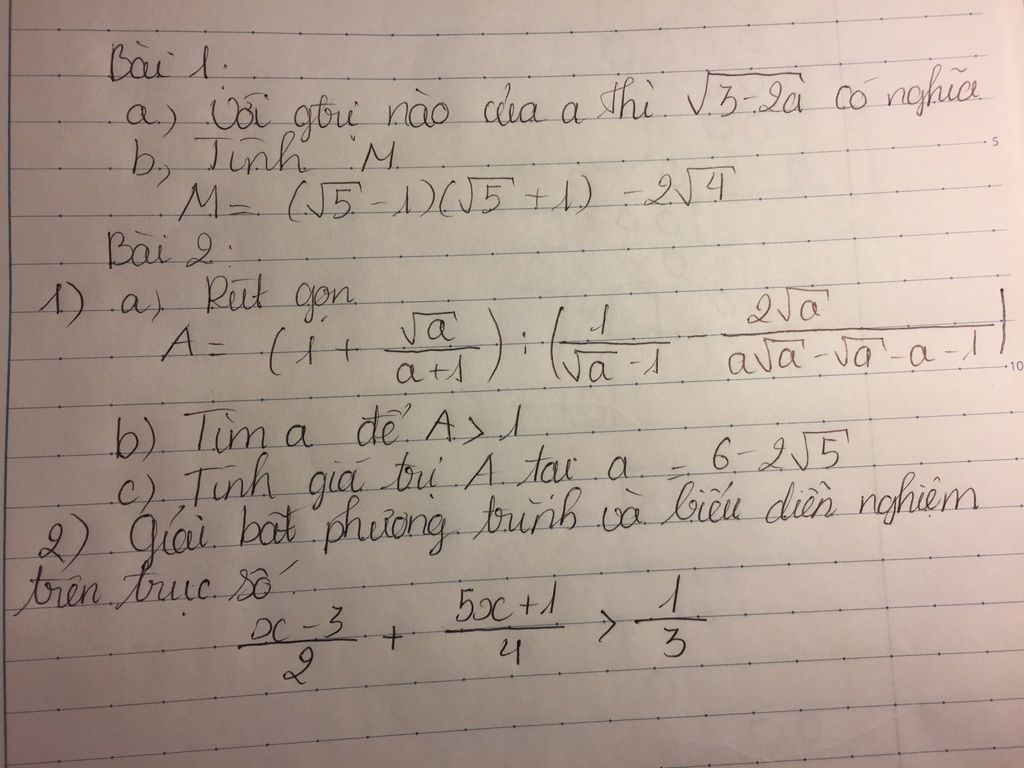 Bài 1.
a) Với gtrị nào của a thì √(3-2a) có nghĩa
b, Tính M
M = (√5 - 1)(√5 + 1) - 2√4
Bài 2.
1) a, Rút gọn
A = (1 + √a/(a+1)) : (1/(√a - 1) - 2√a/(a√a - √a - a - 1))
b) Tìm a để A > 1
c) Tính giá trị A tại a = 6 - 2√5
2) Giải bất phương trình và biểu diễn nghiệm
trên trục số
(x - 3)/2 + (5x + 1)/4 > 1/3
5
10